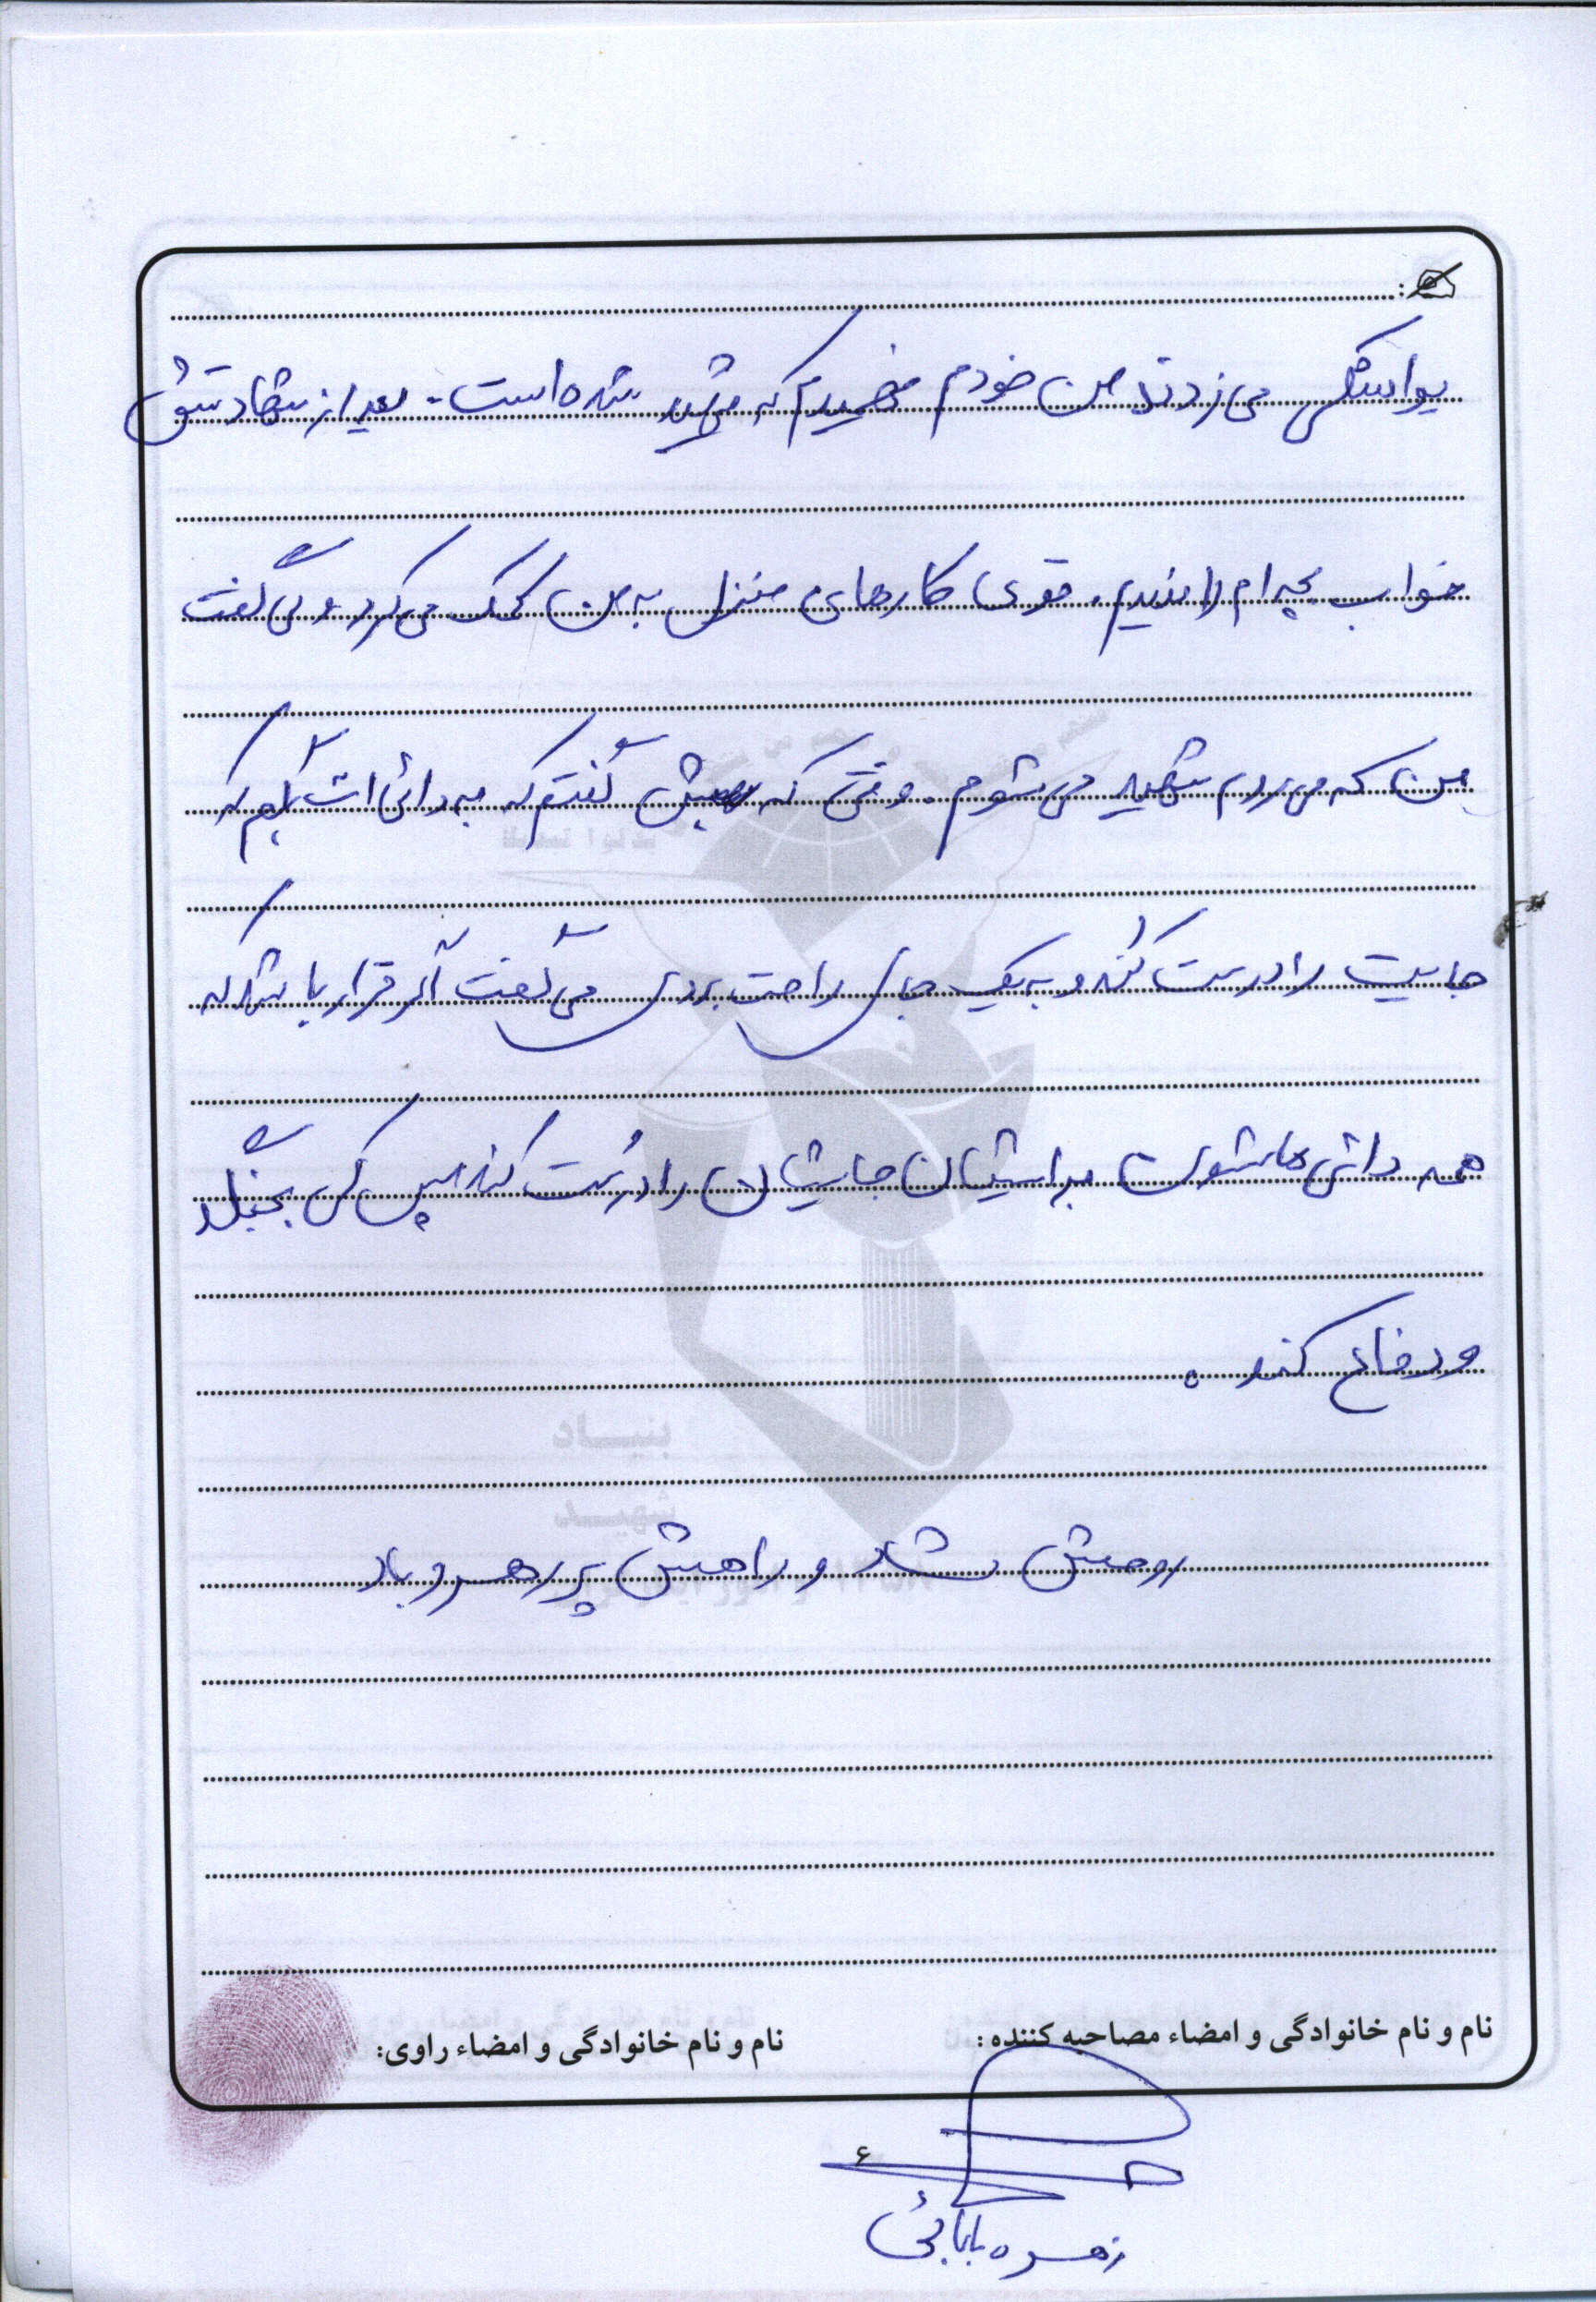 یواشکی می زدند من خودم فهمیدم که شهید شده است. بعد از شهادتش
خواب بچه ام را ندیدم. توی کارهای منزل به من کمک می کرد و می گفت
من که می روم شهید می شوم. وقتی که بهش گفتم که به دائی ات بگویم که
جایت را درست کند و به یک جای راحت بروی می گفت اگر قرار باشد که
همه دائی هاشون براشان جایشان را درست کند پس کی بجنگد
و دفاع کند.
روحش شاد و راهش پر رهرو باد
بنیاد
شهید
نام و نام خانوادگی و امضاء مصاحبه کننده:
نام و نام خانوادگی و امضاء راوی:
۶
زهره بابائی